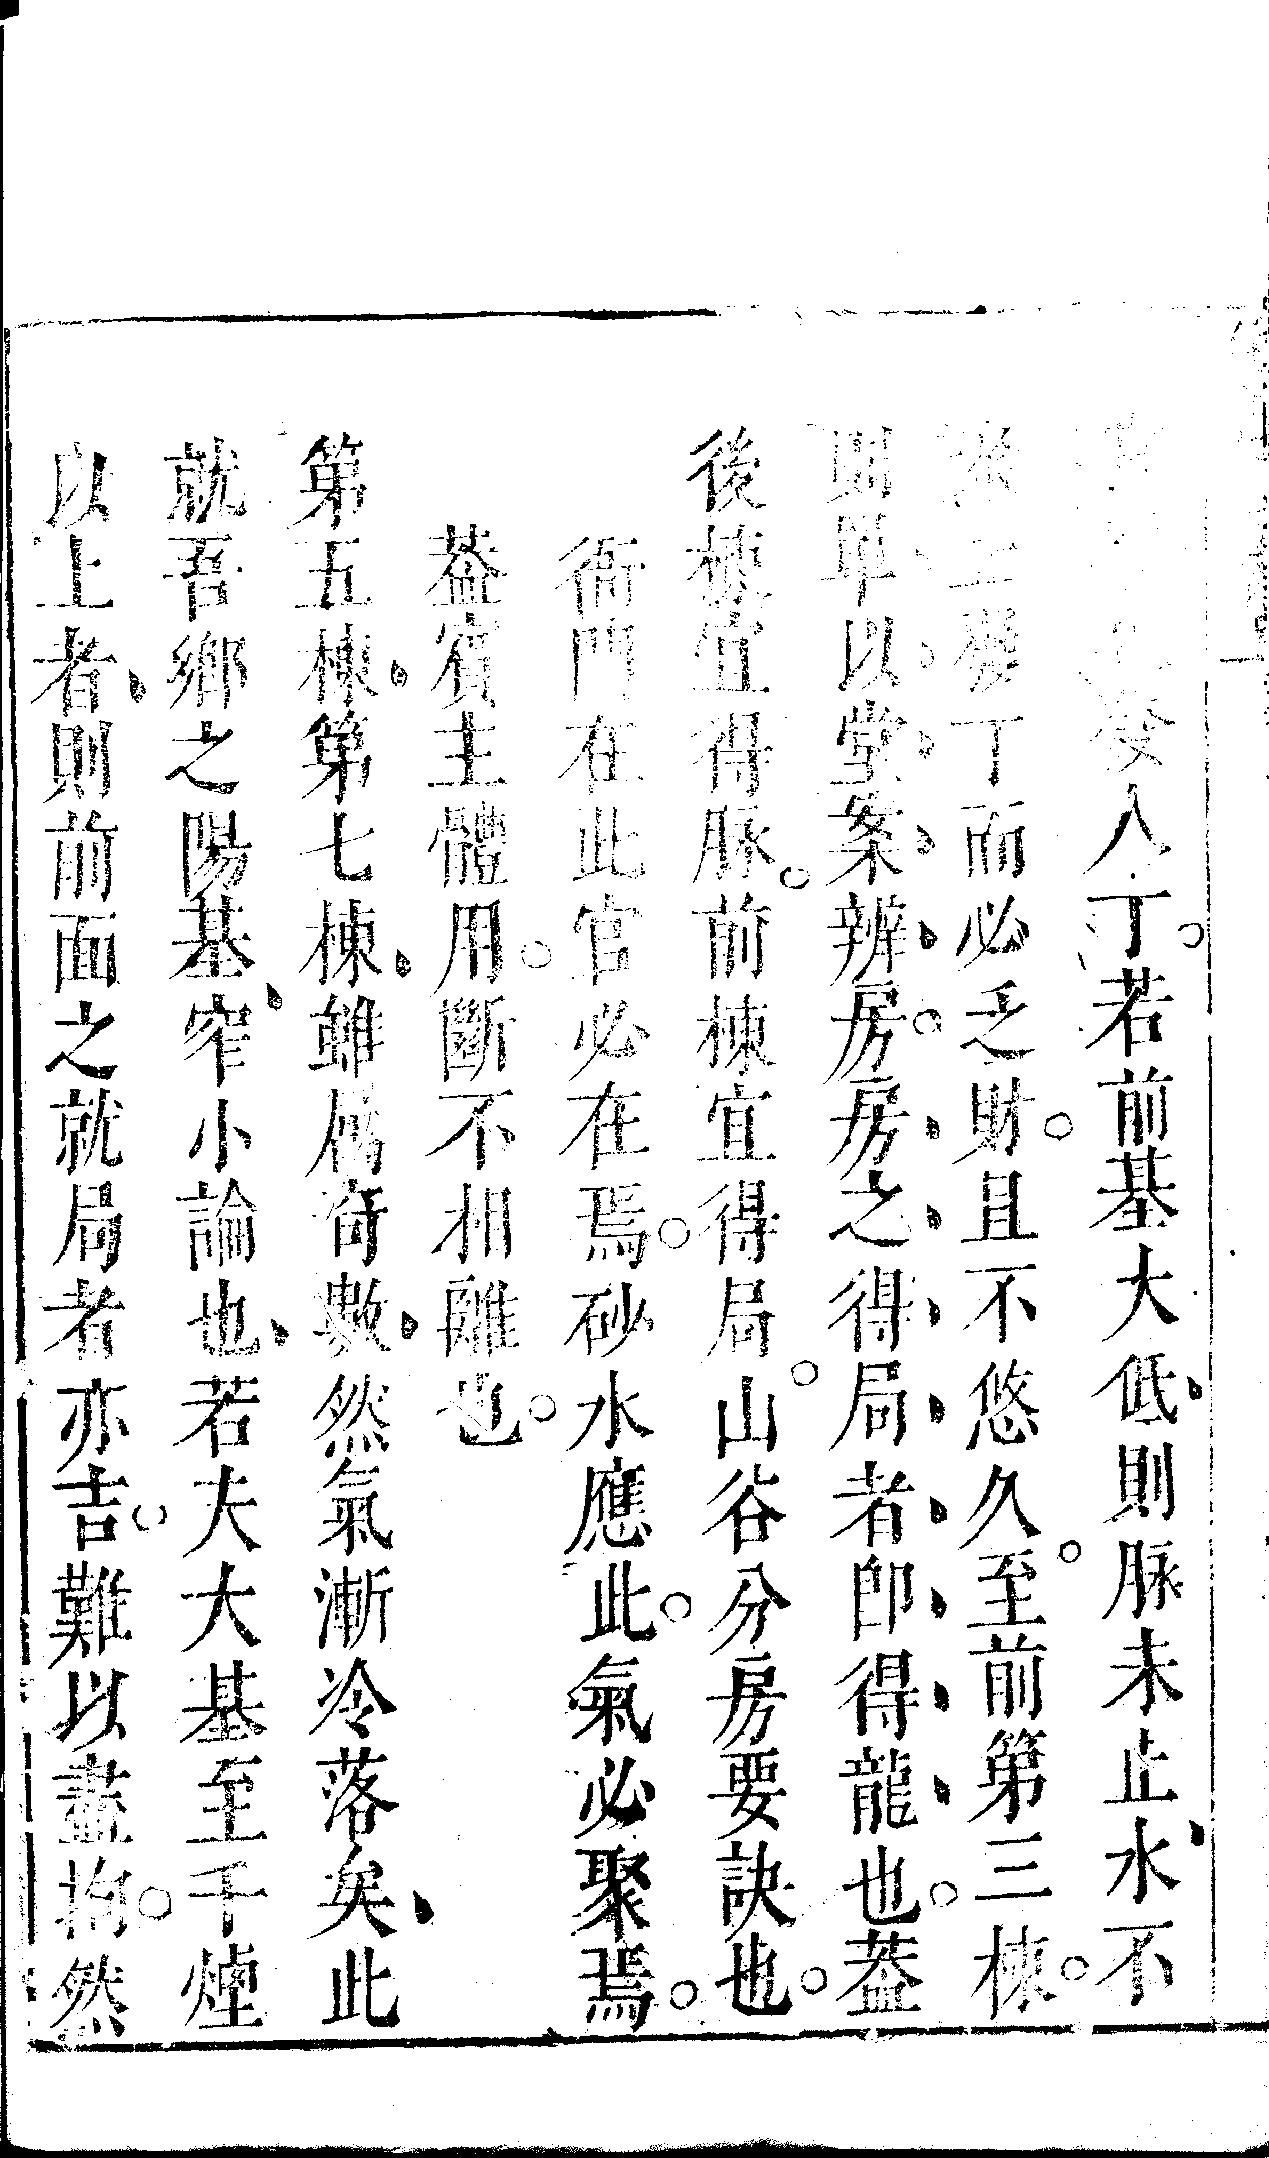 發人丁若前基大低則脉未止水不
聚主發丁而必乏財且不悠久至前第三棟
則單以堂案辨房房之得局者即得龍也葢
後棟宜得脉前棟宜得局山谷分房要訣也
衙門在此官必在焉砂水應此氣必聚焉
葢賓主體用斷不相離也
第五棟第七棟雖屬奇數然氣漸冷落矣此
就吾鄉之陽基窄小論也若夫大基至千煙
以上者則前面之就局者亦吉難以盡拘然